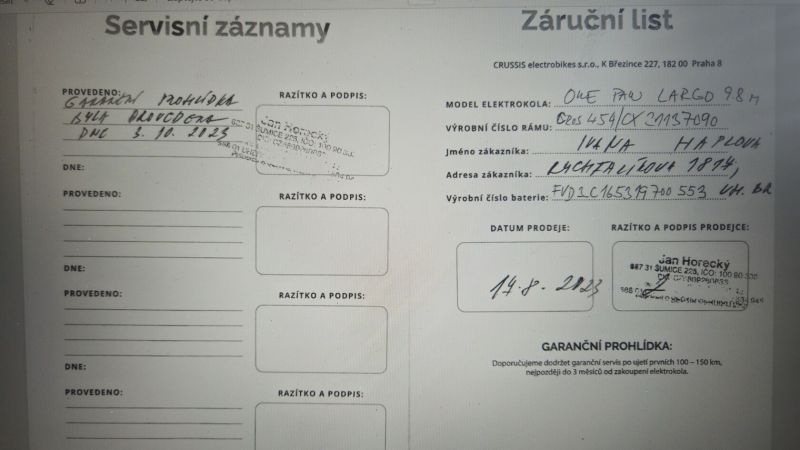 Servisní záznamy
PROVEDENO:
RAZÍTKO A PODPIS:
GARANČNÍ PROHLÍDKA
BYLA PROVEDENA
DNE 3. 10. 2023
Jan Horecký
687 31 ŠUMICE 225, IČO: 100 90
DNE:
PROVEDENO:
RAZÍTKO A PODPIS:
DNE:
PROVEDENO:
RAZÍTKO A PODPIS:
DNE:
PROVEDENO:
RAZÍTKO A PODPIS:
Záruční list
CRUSSIS electrobikes s.r.o., K Březince 227, 182 00 Praha 8
MODEL ELEKTROKOLA: ONE PAN LARGO 9.8 M
VÝROBNÍ ČÍSLO RÁMU:
Jméno zákazníka: IVANA
Adresa zákazníka:
Výrobní číslo baterie: FVD1C165319700553 UH. BR
DATUM PRODEJE:
RAZÍTKO A PODPIS PRODEJCE:
14. 8. 2023
Jan Horecký
687 31 ŠUMICE 225, IČO: 100 90
GARANČNÍ PROHLÍDKA:
Doporučujeme dodržet garanční servis po ujetí prvních 100 – 150 km,
nejpozději do 3 měsíců od zakoupení elektrokola.